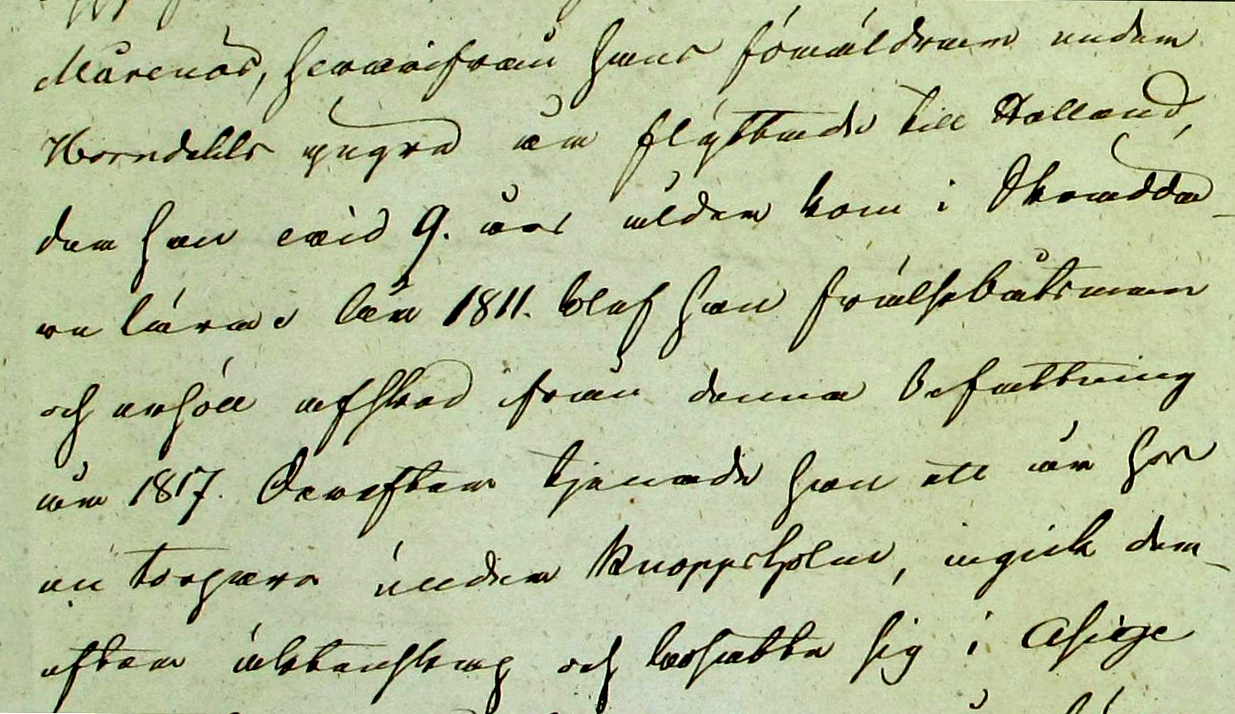 Marenäs, hvarifrån hans föräldrar under
yngra år flyttade till Halland,
der han vid 9. års ålder kom i Skrädda-
re lära. År 1811. blef han frälsebåtsman
och erhöll afsked från denna befattning
år 1817. Derefter tjenade han ett år hos
en torpare under Knoppsholm, ingick der-
efter äktenskap och bosatte sig i Asige